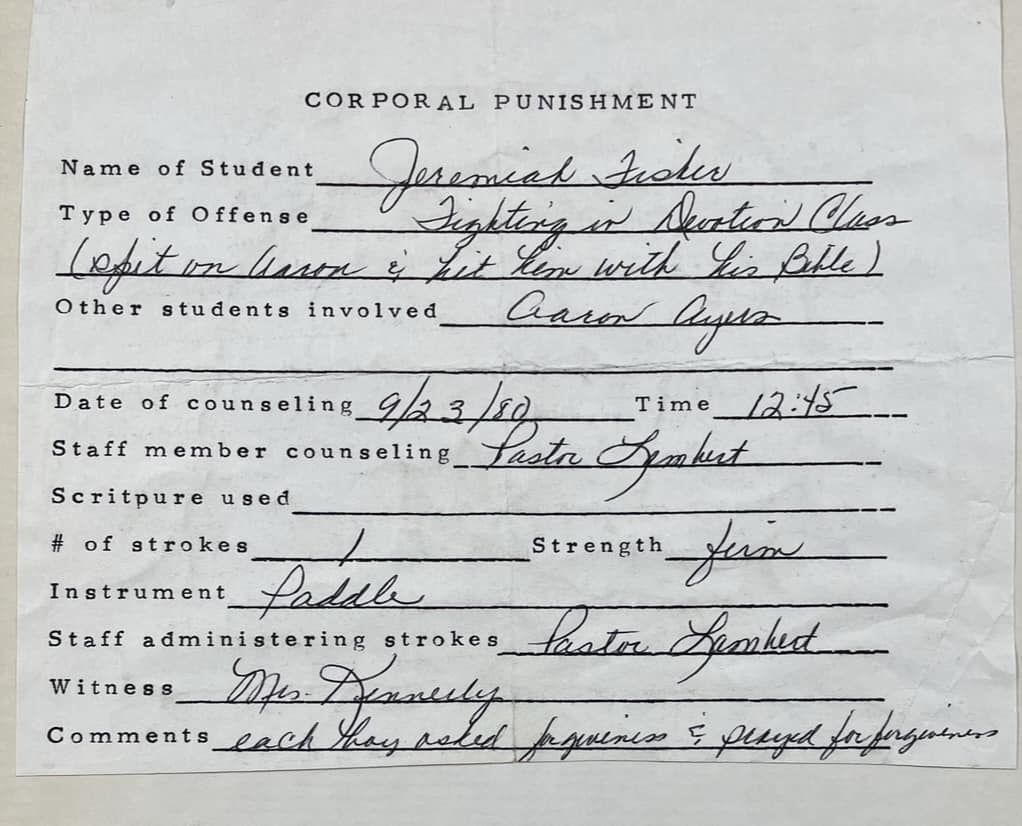 CORPORAL PUNISHMENT
Name of Student Jeremiah Fisher
Type of Offense Fighting in Devotion Class
(spit on Aaron & hit him with his Bible)
Other students involved Aaron Ayers
Date of counseling 9/23/80 Time 12:45
Staff member counseling Pastor Lambert
Scritpure used
# of strokes 1 Strength firm
Instrument Paddle
Staff administering strokes Pastor Lambert
Witness Mrs. Kennerly
Comments each boy asked forgiveness & prayed for forgiveness